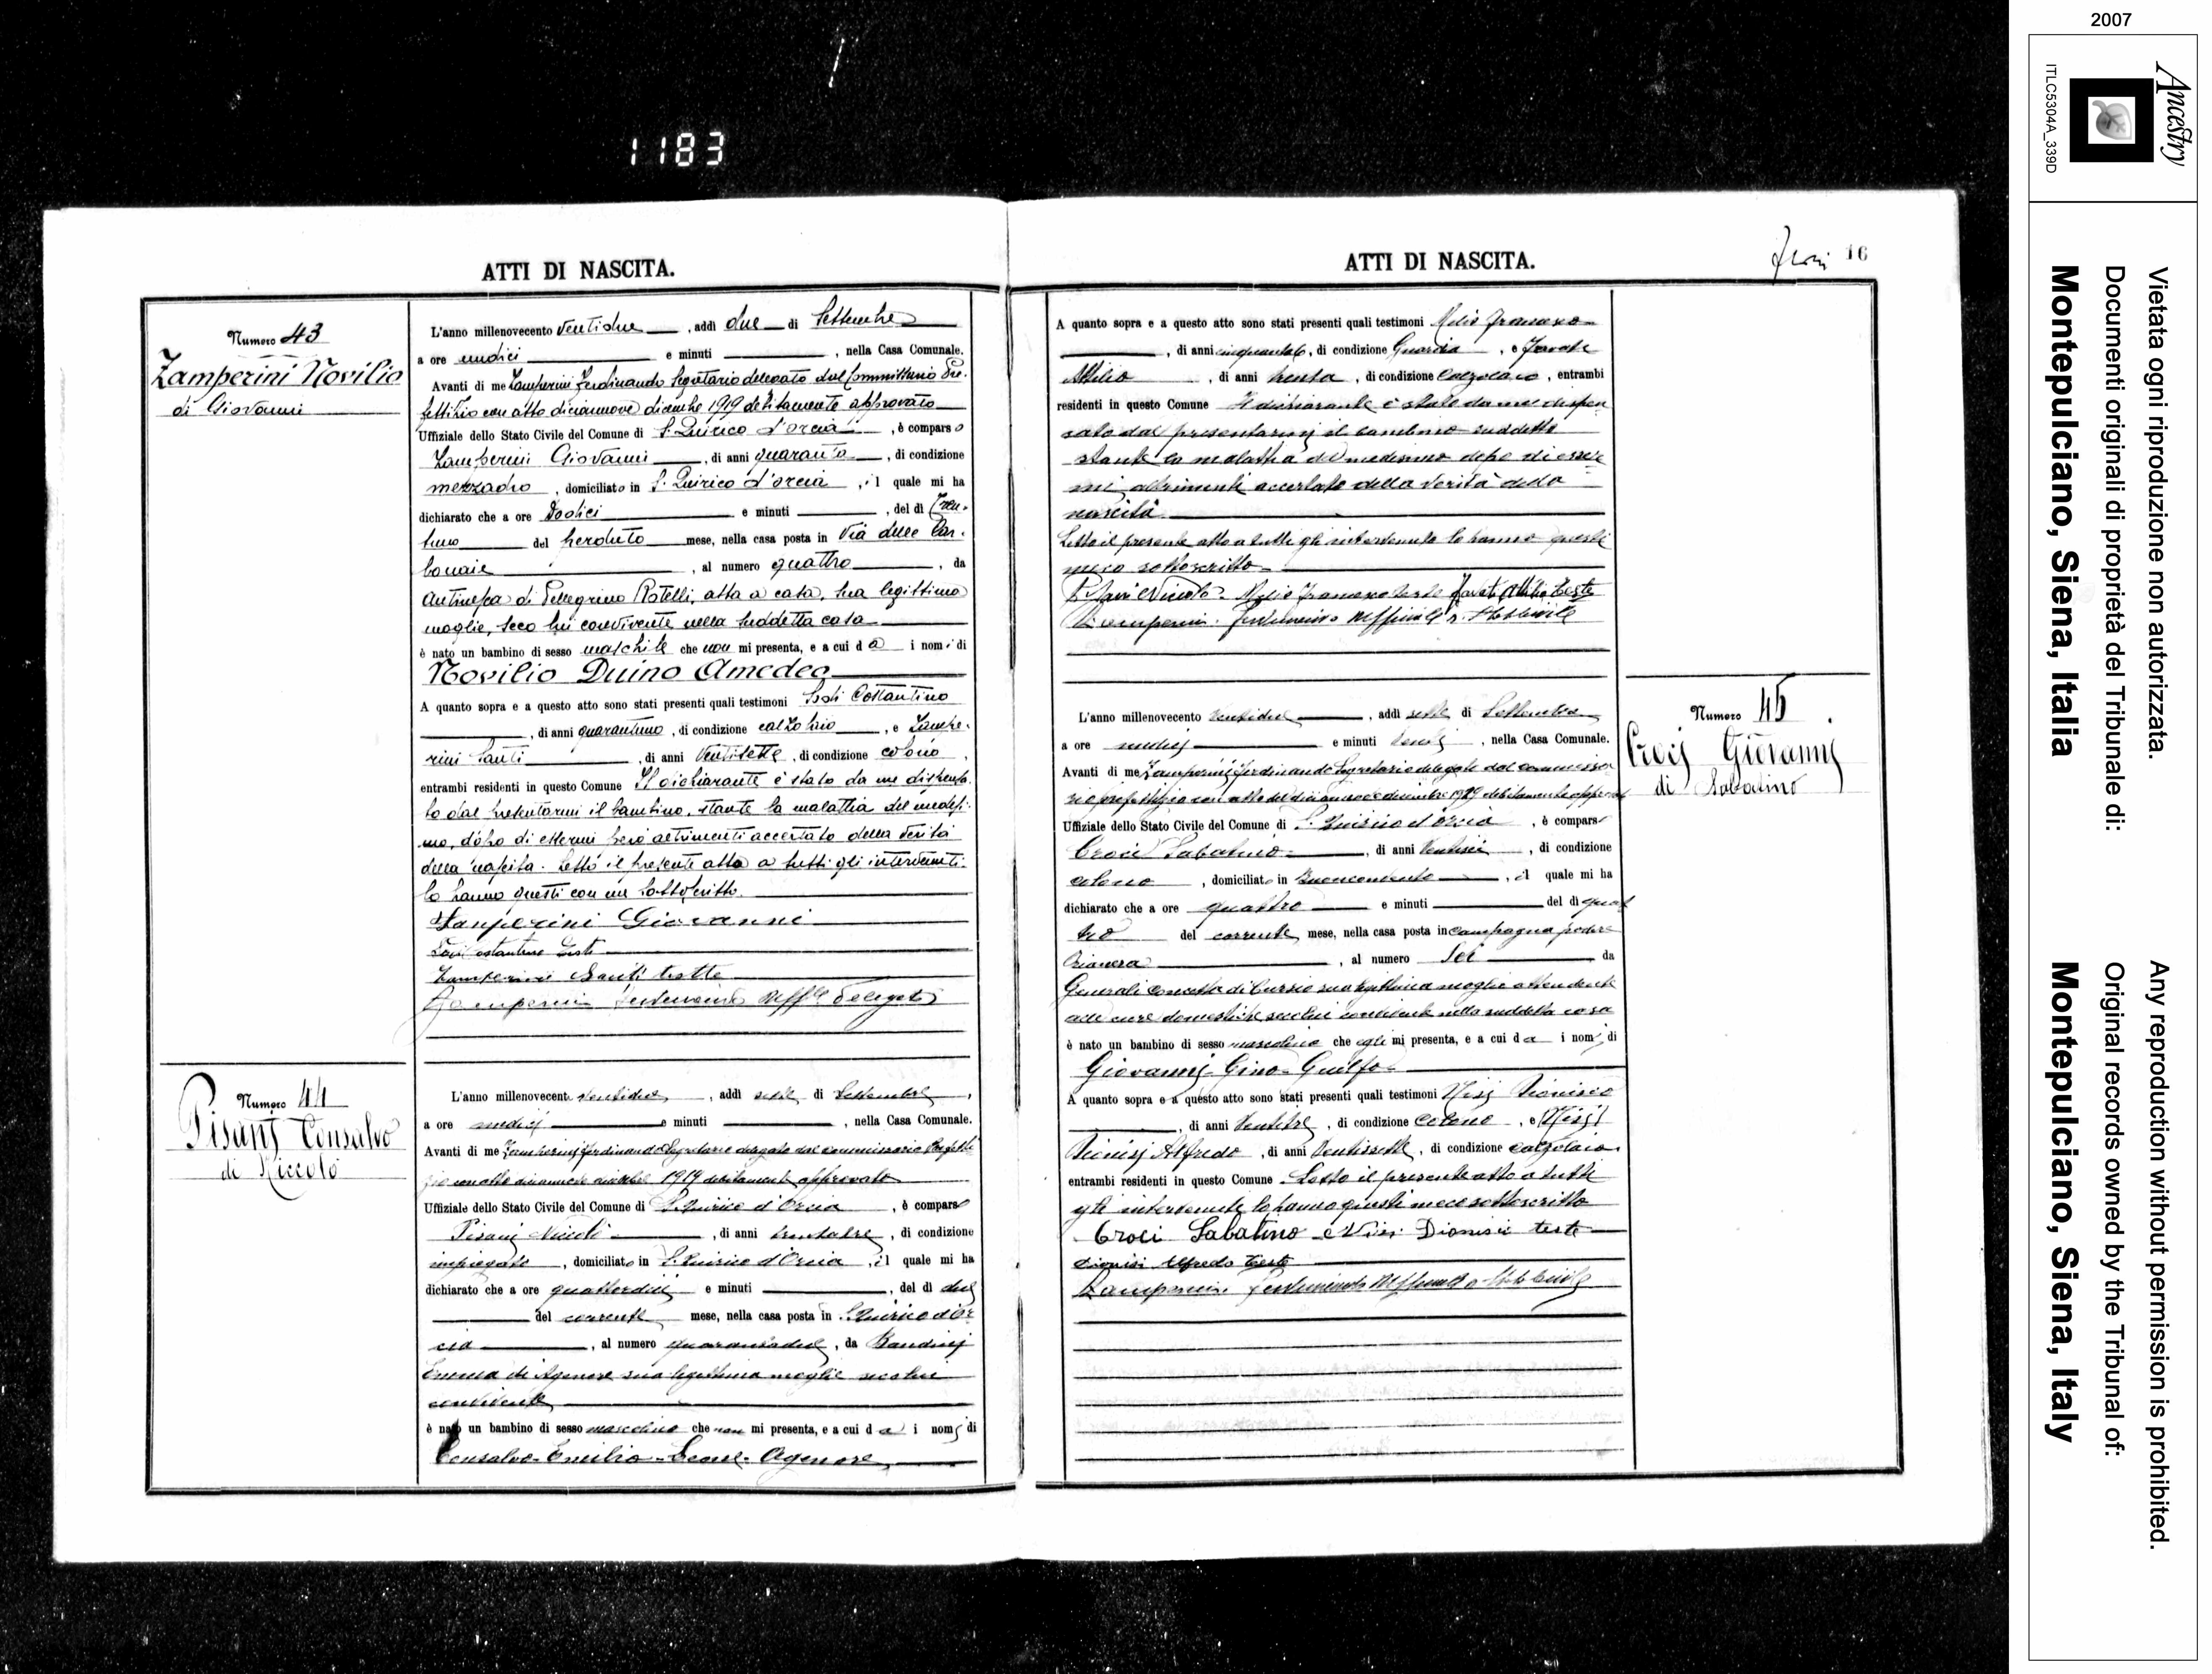 1183
ATTI DI NASCITA.
Numero 43
Zamperini Novilio
di Giovanni
L'anno millenovecento ventidue, addì due di Settembre
a ore undici e minuti , nella Casa Comunale.
Avanti di me Zamperini Ferdinando Segretario delegato dal Commissario Pre-
fettizio con atto diciannove dicembre 1919 debitamente approvato
Uffiziale dello Stato Civile del Comune di S. Quirico d'Orcia, è comparso
Zamperini Giovanni, di anni quaranta, di condizione
mezzadro, domiciliato in S. Quirico d'Orcia, il quale mi ha
dichiarato che a ore dodici e minuti , del dì tren-
tuno del perduto mese, nella casa posta in Via delle Car-
bonaie, al numero quattro, da
Antinesca di Pellegrino Rotelli, atta a casa, sua legittima
moglie, seco lui convivente nella suddetta casa
è nato un bambino di sesso maschile che non mi presenta, e a cui dà i nomi di
Novilio Duino Amedeo
A quanto sopra e a questo atto sono stati presenti quali testimoni Sodi Costantino
, di anni quarantuno, di condizione calzolaio, e Zampe-
rini Santi, di anni ventisette, di condizione colono,
entrambi residenti in questo Comune Il dichiarante è stato da me dispensa-
to dal presentarmi il bambino, stante la malattia del medesi-
mo, dopo di essermi però altrimenti accertato della verità
della nascita. Letto il presente atto a tutti gli intervenuti
lo hanno questi con me sottoscritto.
Zamperini Giovanni
Sodi Costantino teste
Zamperini Santi teste
Zamperini Ferdinando Uffle delegato
Numero 44
Pisani Consalvo
di Niccolò
L'anno millenovecento ventidue, addì sette di Settembre,
a ore undici e minuti , nella Casa Comunale.
Avanti di me Zamperini Ferdinando Segretario delegato dal commissario Prefetti-
zio con atto diciannove dicembre 1919 debitamente approvato
Uffiziale dello Stato Civile del Comune di S. Quirico d'Orcia, è comparso
Pisani Niccolò, di anni trentatre, di condizione
impiegato, domiciliato in S. Quirico d'Orcia, il quale mi ha
dichiarato che a ore quattordici e minuti , del dì due
del corrente mese, nella casa posta in S. Quirico d'Or-
cia, al numero quarantadue, da Bandini
Emma di Agenore sua legittima moglie seco lui
convivente
è nato un bambino di sesso mascolino che non mi presenta, e a cui dà i nomi di
Consalvo Emilio Agenore
ATTI DI NASCITA.
16
A quanto sopra e a questo atto sono stati presenti quali testimoni Francesco
, di anni, di condizione Guardia, e
Attilio, di anni trenta, di condizione calzolaio, entrambi
residenti in questo Comune Il dichiarante è stato da me dispen
sato dal presentarmi il bambino suddetto
stante la malattia del medesimo dopo di esser
mi altrimenti accertato della verità della
nascita
Letto il presente atto a tutti gli intervenuti lo hanno questi
meco sottoscritto
Pisani Niccolò Francesco teste Attilio teste
Zamperini Ferdinando
Numero 45
Croci Giovanni
di Sabatino
L'anno millenovecento ventidue, addì sette di Settembre
a ore undici e minuti venti, nella Casa Comunale.
Avanti di me Zamperini Ferdinando Segretario delegato dal commissa
rio prefettizio con atto del diciannove dicembre 1919 debitamente approvat
Uffiziale dello Stato Civile del Comune di S. Quirico d'Orcia, è comparso
Croci Sabatino, di anni ventisei, di condizione
colono, domiciliato in Buonconvento, il quale mi ha
dichiarato che a ore quattro e minuti del dì quat
tro del corrente mese, nella casa posta in campagna podere
, al numero Sei da
Generali Concetta di sua legittima moglie attendente
alle cure domestiche seco lui convivente nella suddetta casa
è nato un bambino di sesso mascolino che egli mi presenta, e a cui dà i nomi di
Giovanni Gino Guelfo
A quanto sopra e a questo atto sono stati presenti quali testimoni Nisi Dionisio
, di anni ventitre, di condizione colono, e
Dionisi Alfredo, di anni ventisette, di condizione calzolaio
entrambi residenti in questo Comune Letto il presente atto a tutti
gli intervenuti lo hanno questi meco sottoscritto
Croci Sabatino Nisi Dionisio teste
Dionisi Alfredo teste
Zamperini Ferdinando Stato Civile
2007
Ancestry
ITLC5304A_339D
Vietata ogni riproduzione non autorizzata.
Documenti originali di proprietà del Tribunale di:
Montepulciano, Siena, Italia
Any reproduction without permission is prohibited.
Original records owned by the Tribunal of:
Montepulciano, Siena, Italy